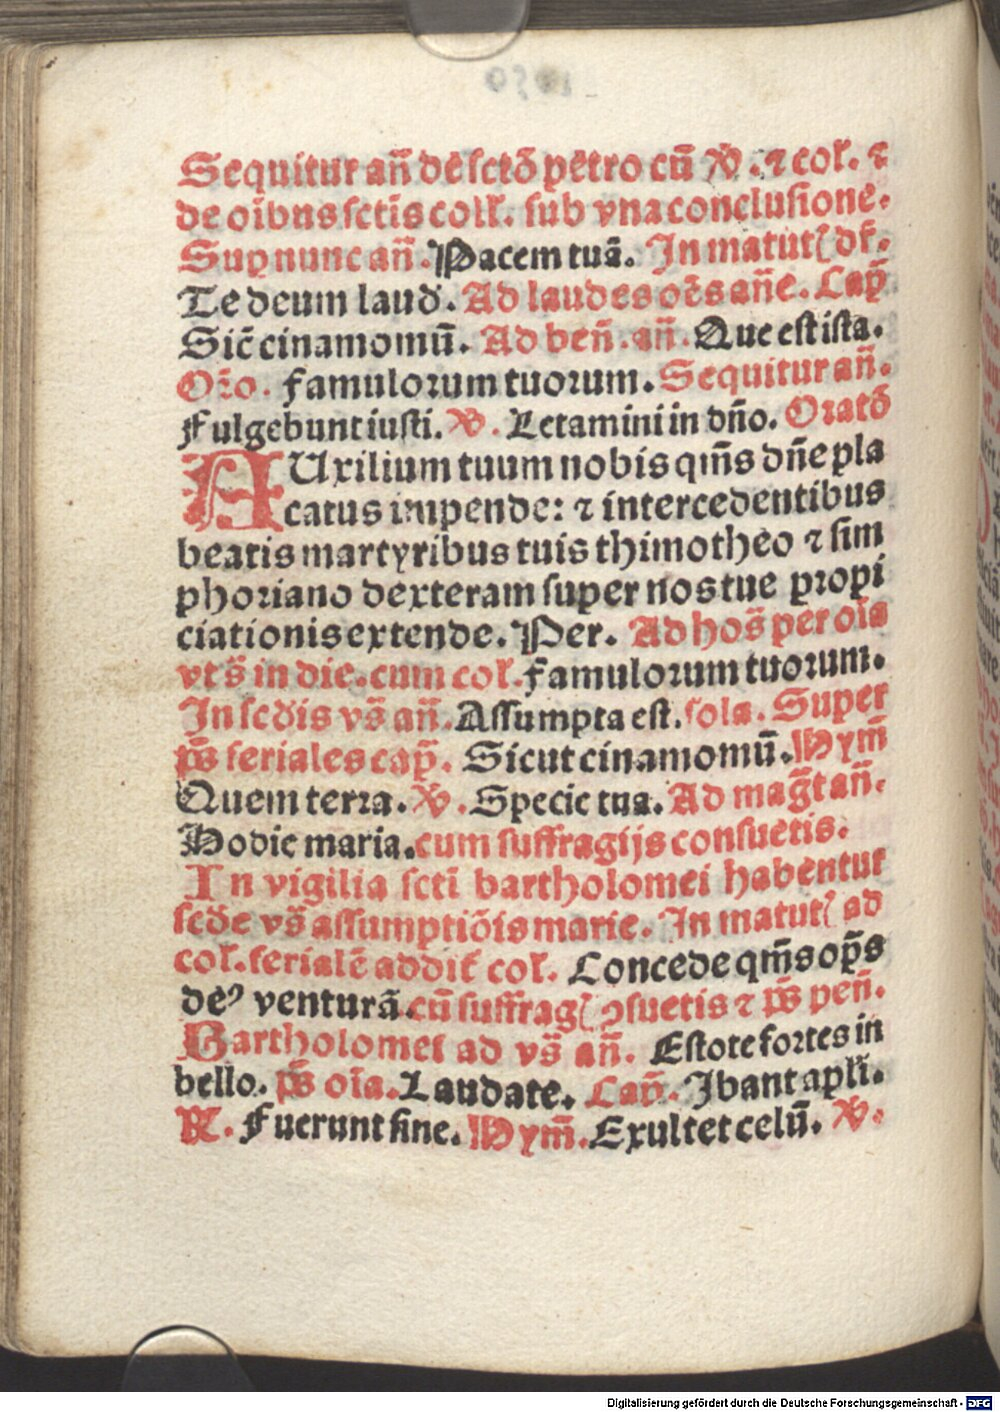 Sequitur añ de sctõ petro cũ ℣. ⁊ col̃. ⁊
de oĩbus sctĩs coll̃. sub vna conclusione.
Suꝑ nunc añ. Pacem tuã. In matutꝭ dr̃.
Te deum laud̃. Ad laudes oẽs añe. Cap̃
Sic̃ cinamomũ. Ad beñ. añ. Que est ista.
Or̃o. Famulorum tuorum. Sequitur añ.
Fulgebunt iusti. ℣. Letamini in dño. Oratõ
AUxilium tuum nobis qm̃s dñe pla
catus impende: ⁊ intercedentibus
beatis martyribus tuis thimotheo ⁊ sim
phoriano dexteram super nos tue propi
ciationis extende. Per. Ad hos̃ per oĩa
vts̃ in die. cum col̃. Famulorum tuorum.
In scd̃is vs̃ añ. Assumpta est. sola. Super
ps̃ feriales cap̃. Sicut cinamomũ. Hym̃
Quem terra. ℣. Specie tua. Ad mag̃t añ.
Hodie maria. cum suffragijs consuetis.
In vigilia sctĩ bartholomei habentur
scd̃e vs̃ assumptiõis marie. In matutꝭ ad
col̃. ferialẽ addit̃ col̃. Concede qm̃s op̃s
deꝰ venturã. cũ suffragꝭ ꝯsuetis ⁊ ps̃ peñ.
Bartholomei ad vs̃ añ. Estote fortes in
bello. ps̃ oĩa. Laudate. Cap̃. Ibant apl̃i.
℟. Fuerunt sine. Hym̃. Exultet celũ. ℣.
Digitalisierung gefördert durch die Deutsche Forschungsgemeinschaft - DFG